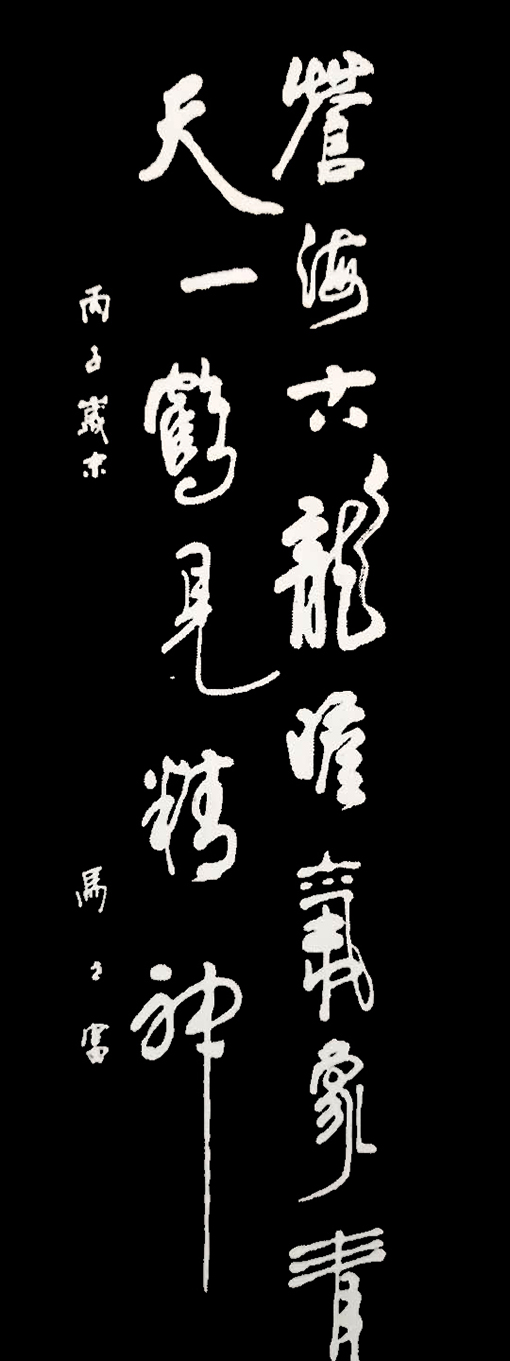 蒼海六龍瞻氣象青
天一鶴見精神
丙子歲末
馬 富